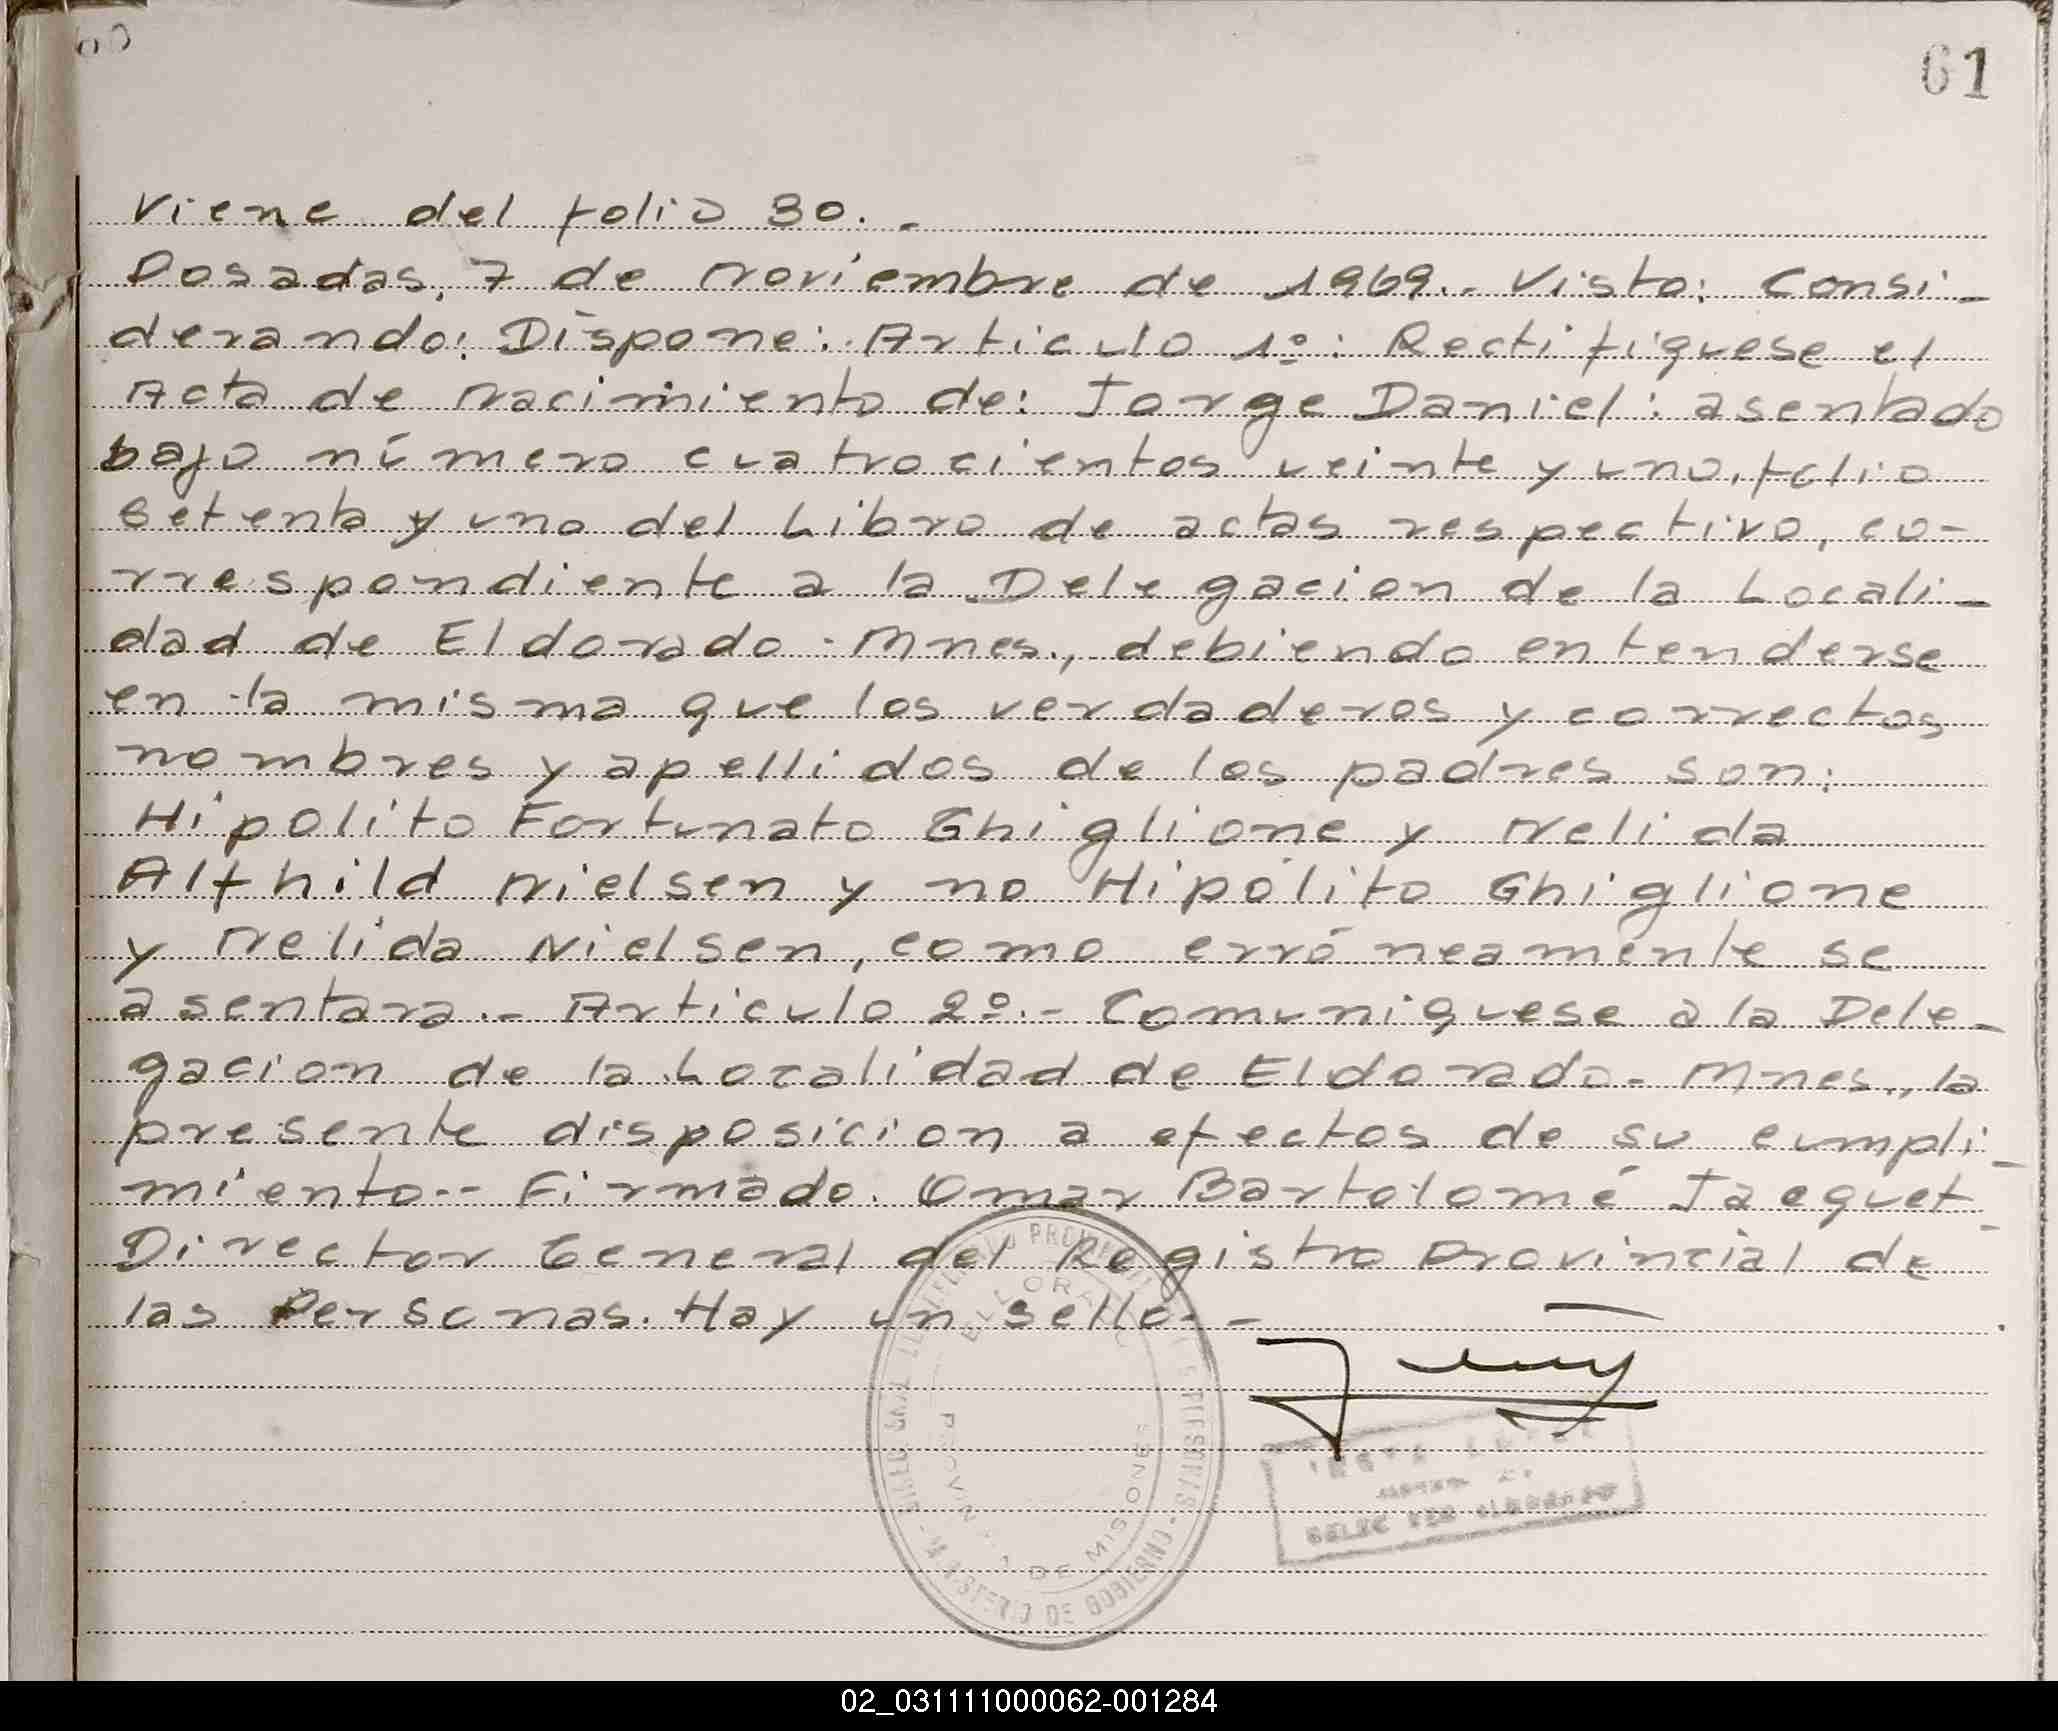 61
Viene del folio 30.-
Posadas, 7 de Noviembre de 1969.- Visto: Consi-
derando: Dispone: Articulo 1º: Rectifiquese el
Acta de Nacimiento de: Jorge Daniel: asentado
bajo número cuatrocientos veinte y uno, folio
setenta y uno del Libro de actas respectivo, co-
rrespondiente a la Delegacion de la Locali-
dad de Eldorado - Mnes., debiendo entenderse
en la misma que los verdaderos y correctos
nombres y apellidos de los padres son:
Hipolito Fortunato Ghiglione y Nelida
Alfhild Nielsen y no Hipólito Ghiglione
y Nelida Nielsen, como erróneamente se
asentara.- Articulo 2º.- Comuniquese a la Dele-
gacion de la Localidad de Eldorado - Mnes., la
presente disposicion a efectos de su cumpli-
miento.- Firmado. Omar Bartolomé Jacquet
Director General del Registro Provincial de
las Personas. Hay un sello.-
PROVINCIA DE MISIONES
MINISTERIO DE GOBIERNO
02_031111000062-001284